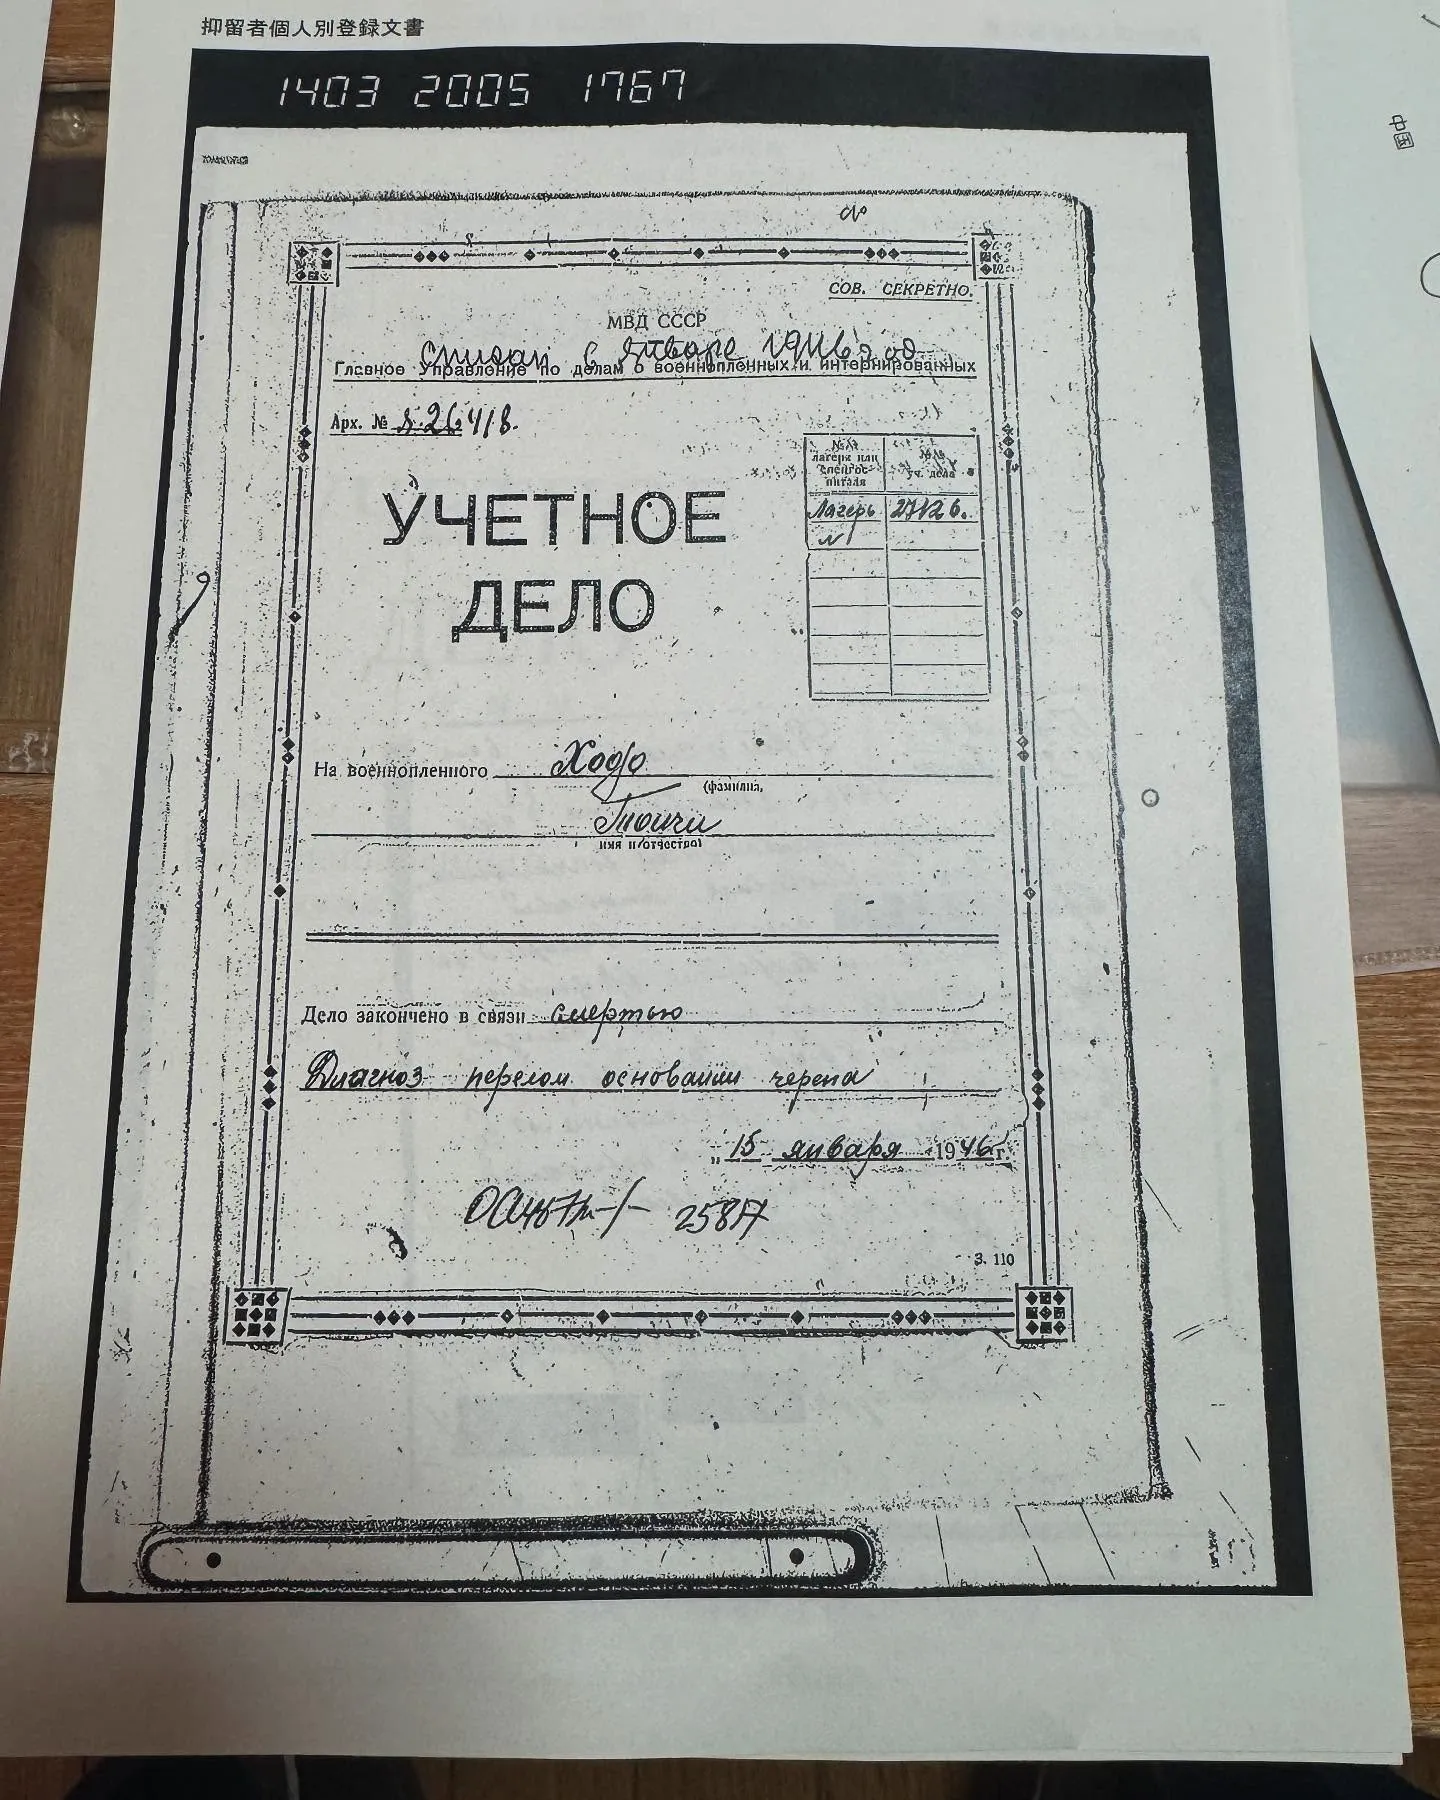 抑留者個人別登録文書
1403 2005 1767
СОВ. СЕКРЕТНО.
МВД СССР
Списан с января 1946 год
Главное Управление по делам о военнопленных и интернированных
Арх. №
№№ лагеря или спецгоспиталя
№№ уч. дела
Лагерь 27126.
№ 1
УЧЕТНОЕ
ДЕЛО
На военнопленного Ходо
(фамилия,
Тоичи
имя и отчество)
Дело закончено в связи смертью
Диагноз перелом основании черепа
„15 января 1946 г.
З. 110
中国